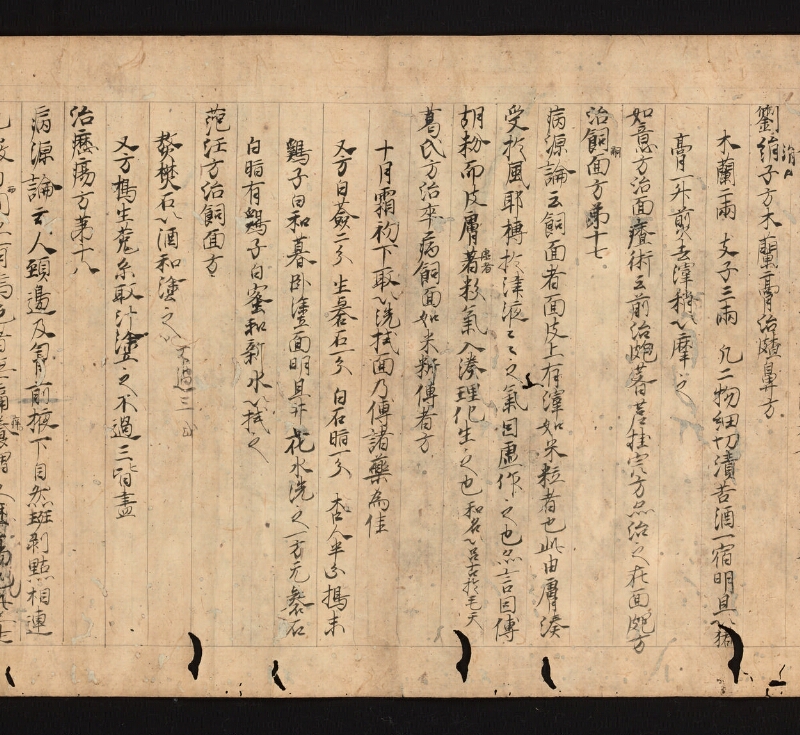 劉涓子方木蘭膏治皶鼻方
木蘭二兩 支子三兩 凡二物細切漬苦酒一宿明旦以猪
膏一升煎去滓稍以摩之
如意方治面 術云前治皰
治飼面方第十七
病源論云飼面者面皮上有滓如米粒者也此由膚湊
受於風耶搏於津液之氣因虛作之也亦言因傅
胡粉而皮膚著粉氣入湊理化生之也
葛氏方治卒病飼面如米粉傅者方
十月霜初下取以洗拭面乃傅諸藥為佳
又方白蘞二分 生礬石一分 白石脂一分 杏人半分 搗末
鷄子白和暮卧塗面明旦井花水洗之一方无礬石
白脂有鷄子白蜜和新水以拭之
范汪方治飼面方
熬礬石以酒和塗之 不過三
又方搗生菟糸取汁塗之不過三皆盡
治癧瘍方第十八
病源論云人頸邊及胷前掖下自然斑剥點相連